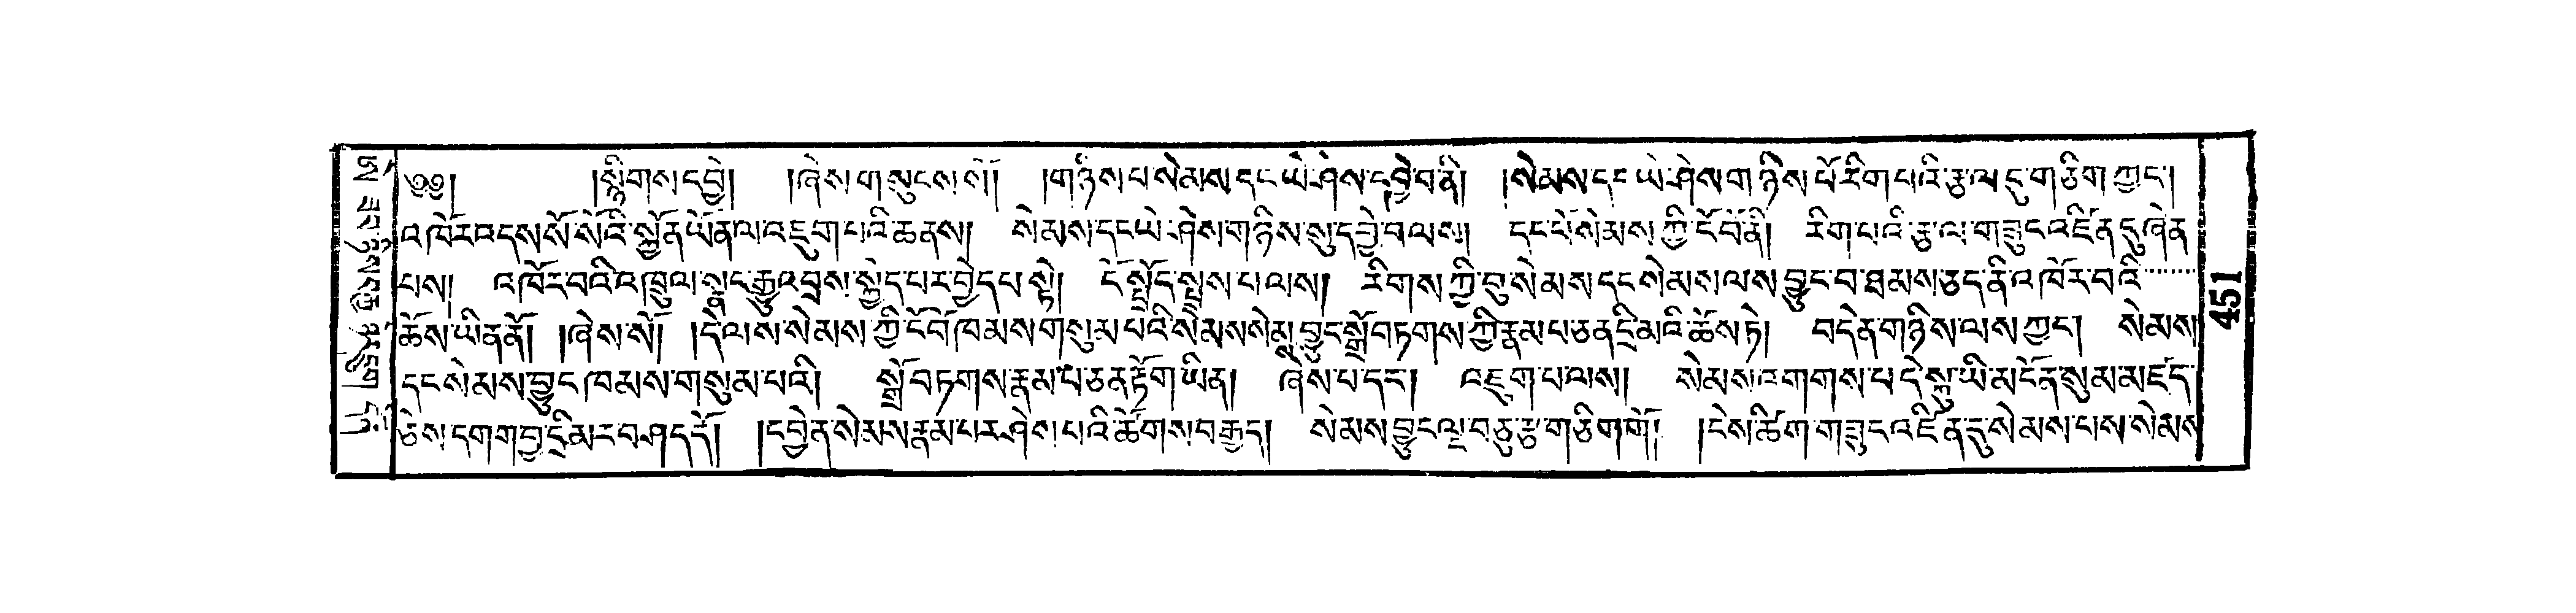 ༄༅། །སྙིགས་དབྱེ། །ཞེས་གསུངས་སོ། །གཉིས་པ་སེམས་དང་ཡེ་ཤེས་དབྱེ་བ་ནི། །སེམས་དང་ཡེ་ཤེས་གཉིས་པོ་རིག་པའི་རྩལ་དུ་གཅིག་ཀྱང་།
འཁོར་འདས་སོ་སོའི་སྐྱོན་ཡོན་ལ་འཇུག་པའི་ཆ་ནས། སེམས་དང་ཡེ་ཤེས་གཉིས་སུ་དབྱེ་བ་ལས། དང་པོ་སེམས་ཀྱི་ངོ་བོ་ནི། རིག་པའི་རྩལ་གཟུང་འཛིན་དུ་ཞེན་
པས། འཁོར་བའི་འཁྲུལ་སྣང་རྒྱུ་འབྲས་སྐྱེད་པར་བྱེད་པ་སྟེ། ངོ་སྤྲོད་སྤྲས་པ་ལས། རིགས་ཀྱི་བུ་སེམས་དང་སེམས་ལས་བྱུང་བ་ཐམས་ཅད་ནི་འཁོར་བའི་
ཆོས་ཡིན་ནོ། །ཞེས་སོ། །དེ་ལས་སེམས་ཀྱི་ངོ་བོ་ཁམས་གསུམ་པའི་སེམས་སེམས་བྱུང་སྒྲོ་བཏགས་ཀྱི་རྣམ་པ་ཅན་དྲི་མའི་ཆོས་ཏེ། བདེན་གཉིས་ལས་ཀྱང་། སེམས་
དང་སེམས་བྱུང་ཁམས་གསུམ་པའི། སྒྲོ་བཏགས་རྣམ་པ་ཅན་རྟོག་ཡིན། ཞེས་པ་དང་། འཇུག་པ་ལས། སེམས་འགགས་པ་དེ་སྐུ་ཡི་མངོན་སུམ་མཛད་
ཅེས་དགག་བྱ་དྲི་མར་བཤད་དོ། །དབྱེ་ན་སེམས་རྣམ་པར་ཤེས་པའི་ཚོགས་བརྒྱད། སེམས་བྱུང་ལྔ་བཅུ་རྩ་གཅིག་གོ། །ངེས་ཚིག་གཟུང་འཛིན་དུ་སེམས་པས་སེམས
451